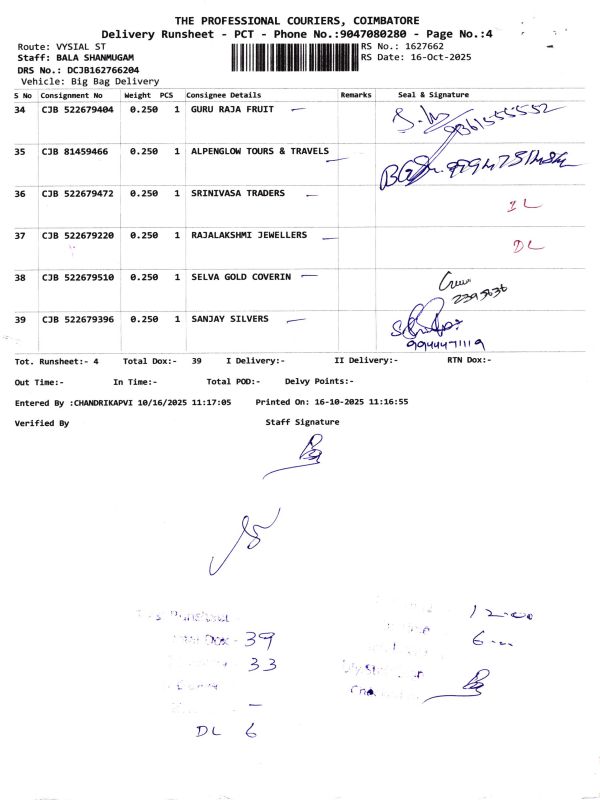 THE PROFESSIONAL COURIERS, COIMBATORE
Delivery Runsheet - PCT - Phone No.:9047080280 - Page No.:4
Route: VYSIAL ST RS No.: 1627662
Staff: BALA SHANMUGAM RS Date: 16-Oct-2025
DRS No.: DCJB162766204
Vehicle: Big Bag Delivery
S No Consignment No Weight PCS Consignee Details Remarks Seal & Signature
34 CJB 522679404 0.250 1 GURU RAJA FRUIT —
9361555552
35 CJB 81459466 0.250 1 ALPENGLOW TOURS & TRAVELS —
36 CJB 522679472 0.250 1 SRINIVASA TRADERS — IL
37 CJB 522679220 0.250 1 RAJALAKSHMI JEWELLERS — DL
38 CJB 522679510 0.250 1 SELVA GOLD COVERIN —
2395636
39 CJB 522679396 0.250 1 SANJAY SILVERS —
9944471119
Tot. Runsheet:- 4 Total Dox:- 39 I Delivery:- II Delivery:- RTN Dox:-
Out Time:- In Time:- Total POD:- Delvy Points:-
Entered By :CHANDRIKAPVI 10/16/2025 11:17:05 Printed On: 16-10-2025 11:16:55
Verified By Staff Signature
12-00
Dox - 39 6-
33
—
DL 6